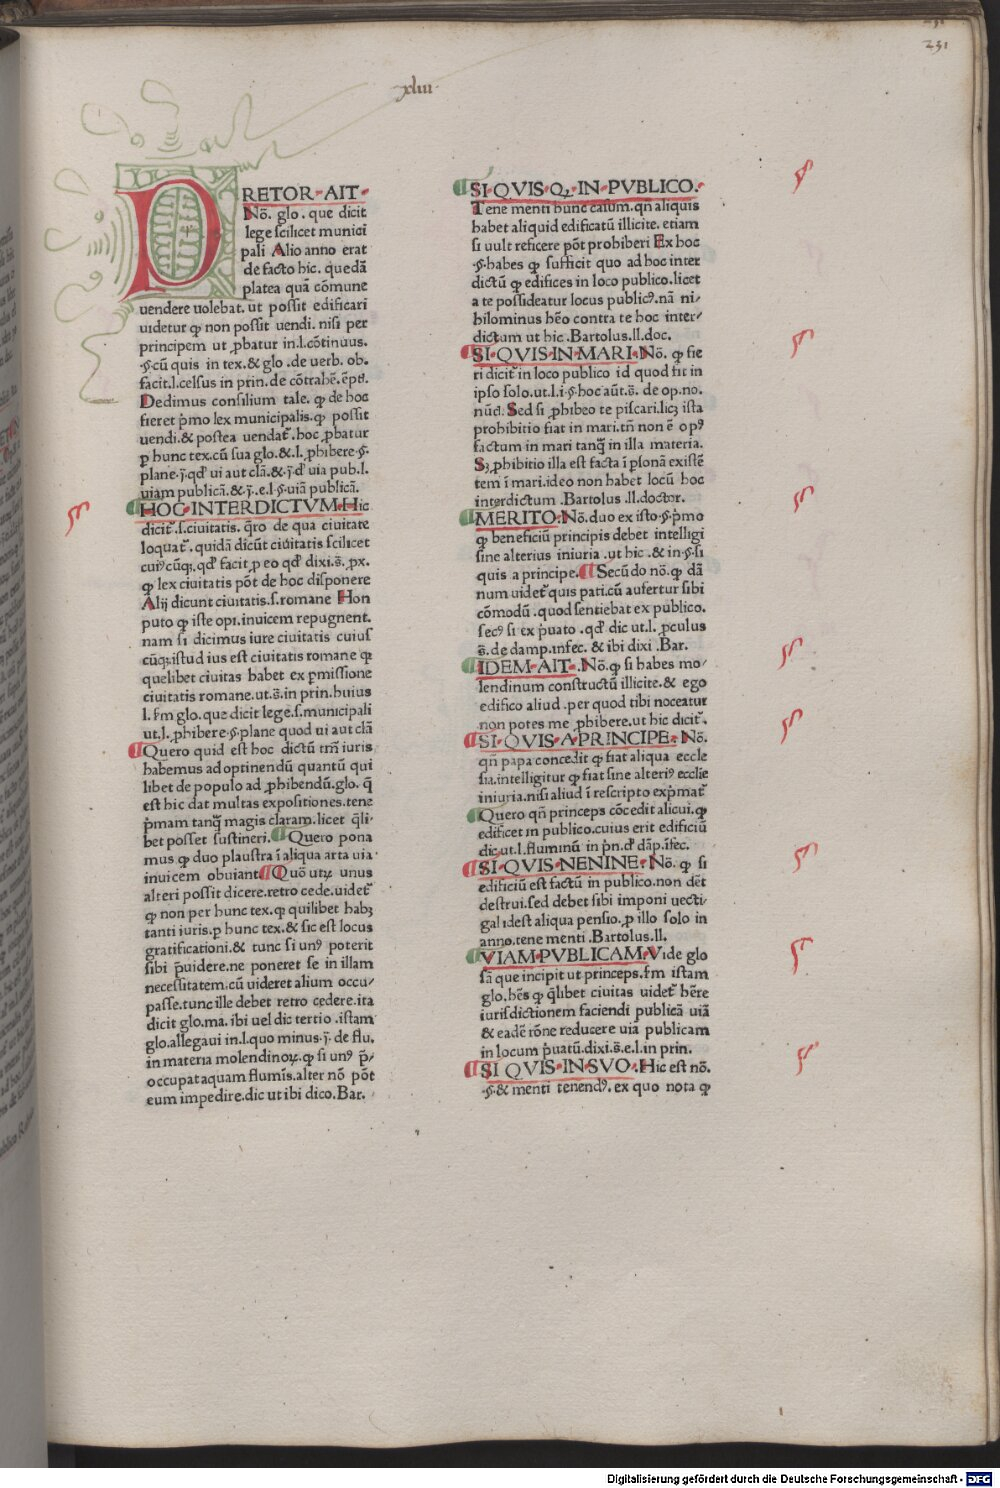 xliii
251
PRETOR AIT
Nō. glo. que dicit
lege scilicet munici
pali Alio anno erat
de facto hic. quedā
platea quā cōmune
uendere uolebat. ut possit edificari
uidetur ꝙ non possit uendi. nisi per
principem ut ꝓbatur in.l.cōtinuus.
.§.cū quis in tex.& glo.de uerb. ob.
facit.l.celsus in prin.de cōtrahē.ēpt.
Dedimus consilium tale. ꝙ de hoc
fieret p̄mo lex municipalis.ꝙ possit
uendi.& postea uendat᷑.hoc ꝓbatur
ꝑ hunc tex.cū sua glo.&.l.ꝓhibere.§.
plane.j̄.qđ ui aut clā.&.j̄.đ uia pub.l.
uiam publicā.&.j̄.e.l.§.uiā publicā.
HOC INTERDICTVM. Hic
dicit᷑.s.ciuitatis. q̄ro de qua ciuitate
loquat᷑.quidā dicūt ciuitatis scilicet
cuiꝰcūqꝫ.qđ facit ꝑ eo qđ dixi.s̄.ꝓx.
ꝙ lex ciuitatis pōt de hoc disponere
Alij dicunt ciuitatis.s.romane Hon
puto ꝙ iste opi.inuicem repugnent.
nam si dicimus iure ciuitatis cuius
cūqꝫ.istud ius est ciuitatis romane ꝙ
quelibet ciuitas habet ex ꝑmissione
ciuitatis romane.ut.s̄.in prin.huius
l.fm glo.que dicit lege.s.municipali
ut.l.ꝓhibere.§.plane quod ui aut clā
Quero quid est hoc dictū tm̄ iuris
habemus ad optinendū quantū qui
libet de populo ad ꝓhibendū.glo. q̄
est hic dat multas expositiones.tene
p̄mam tanq̄ magis claram.licet q̄li-
bet posset sustineri. Quero pona
mus ꝙ duo plaustra ī aliqua arta uia
inuicem obuiant Quō utꝝ unus
alteri possit dicere.retro cede.uidet᷑
ꝙ non per hunc tex.ꝙ quilibet habꝫ
tanti iuris.ꝑ hunc tex.& sic est locus
gratificationi.& tunc si unꝰ poterit
sibi p̄uidere.ne poneret se in illam
necessitatem.cū uideret alium occu/
passe.tunc ille debet retro cedere.ita
dicit glo.ma.ibi uel dic tertio.istam
glo.allegaui in.l.quo minus.j̄.de flu.
in materia molendinoꝝ.ꝙ si unꝰ p̄/
occupat aquam flumīs.alter nō pōt
eum impedire.dic ut ibi dico.Bar.
SI QVIS Q; IN PVBLICO.
Tene menti hunc casum.qn̄ aliquis
habet aliquid edificatū illicite. etiam
si uult reficere pōt prohiberi Ex hoc
.§.habes ꝙ sufficit quo ad hoc inter
dictū ꝙ edifices in loco publico.licet
a te possideatur locus publicꝰ.nā ni/
hilominus hēo contra te hoc inter/
dictum ut hic .Bartolus.ll.doc.
SI QVIS IN MARI. Nō. ꝙ fie
ri dicit᷑ in loco publico id quod fit in
ipso solo.ut.l.i.§.hoc aūt.s̄. de op.no.
nūd. Sed si ꝓhibeo te piscari.licꝫ ista
prohibitio fiat in mari.tn̄ non ē opꝰ
factum in mari tanq̄ in illa materia.
Sꝫ ꝓhibitio illa est facta ī ꝑsonā existē
tem ī mari.ideo non habet locū hoc
interdictum .Bartolus .ll.doctor.
MERITO. Nō. duo ex isto.§.p̄mo
ꝙ beneficiū principis debet intelligi
sine alterius iniuria .ut hic .& in.§.si
quis a principe. Secūdo nō.ꝙ dā
num uidet᷑ quis pati.cū aufertur sibi
cōmodū .quod sentiebat ex publico.
secꝰ si ex p̄uato .qđ dic ut.l. ꝓculus
s̄.de damp.infec. & ibi dixi .Bar.
IDEM AIT. .Nō.ꝙ si habes mo/
lendinum constructū illicite.& ego
edifico aliud .per quod tibi noceatur
non potes me ꝓhibere.ut hic dicit᷑.
SI QVIS A PRINCIPE. Nō.
qn̄ papa concedit ꝙ fiat aliqua eccle
sia.intelligitur ꝙ fiat sine alteriꝰ ecclie
iniuria.nisi aliud ī rescripto exp̄mat᷑
Quero qn̄ princeps cōcedit alicui.ꝙ
edificet in publico.cuius erit edificiū
dic.ut.l.fluminū in p̄n.đ dāp.īfec.
SI QVIS NENINE. Nō. ꝙ si
edificiū est factū in publico.non dēt
destrui.sed debet sibi imponi uecti/
gal idest aliqua pensio.ꝓ illo solo in
anno.tene menti .Bartolus.ll.
VIAM PVBLICAM. Vide glo
sā que incipit ut princeps.fm istam
glo.hēs ꝙ q̄libet ciuitas uidet᷑ hēre
iurisdictionem faciendi publicā uiā
& eadē rōne reducere uiā publicam
in locum p̄uatū.dixi.s̄.e.l.in prin.
SI QVIS IN SVO. Hic est nō.
.§.& menti tenendꝰ. ex quo nota ꝙ
Digitalisierung gefördert durch die Deutsche Forschungsgemeinschaft - DFG